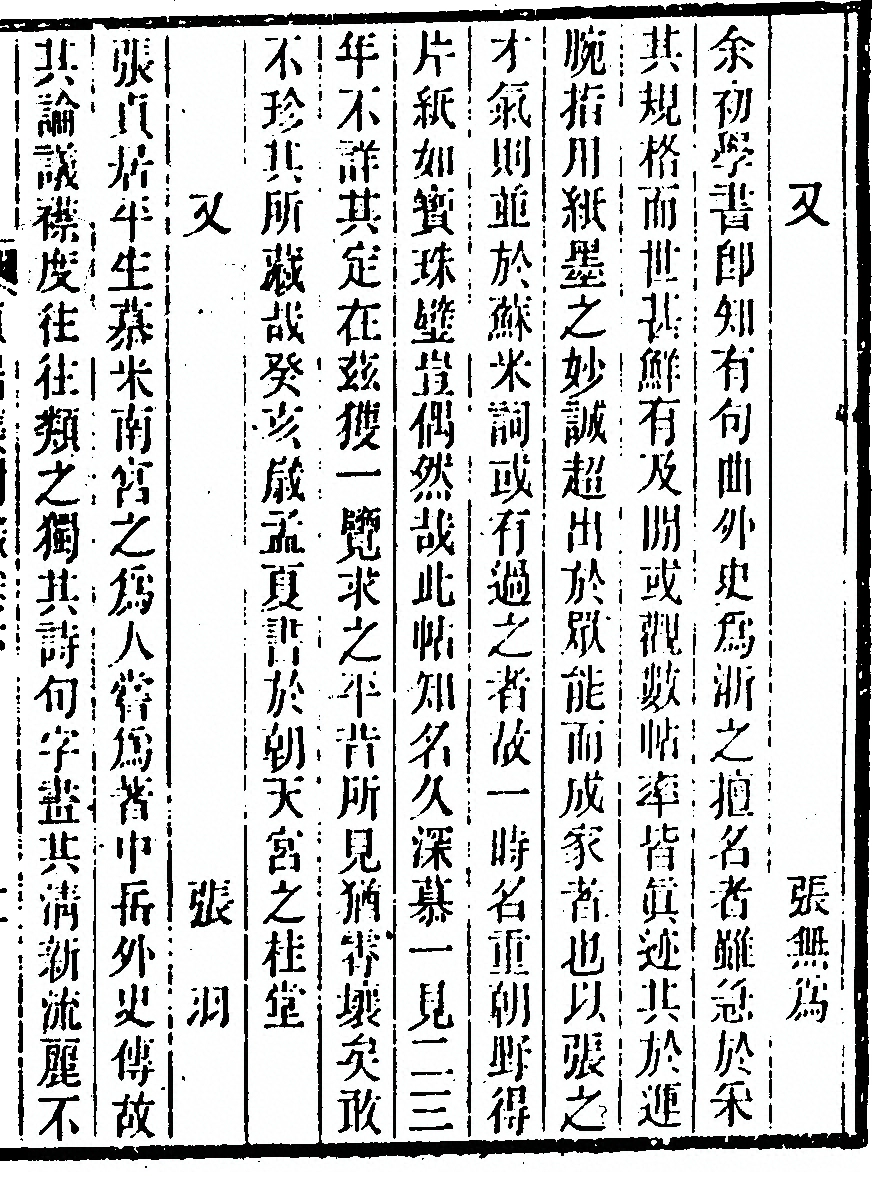 又 張無為
余初學書即知有句曲外史為浙之擅名者雖急於采
其規格而世甚鮮有及閒或觀數帖率皆真迹其於運
腕指用紙墨之妙誠超出於眾能而成家者也以張之
才氣則並於蘇米詞或有過之者故一時名重朝野得
片紙如寶珠璧豈偶然哉此帖知名久深慕一見二三
年不詳其定在茲獲一覽求之平昔所見猶霄壤矣敢
不珍其所藏哉癸亥歲孟夏書於朝天宮之桂堂
又 張羽
張貞居平生慕米南宮之為人嘗為著中岳外史傳故
其論議襟度往往類之獨其詩句字畫其清新流麗不